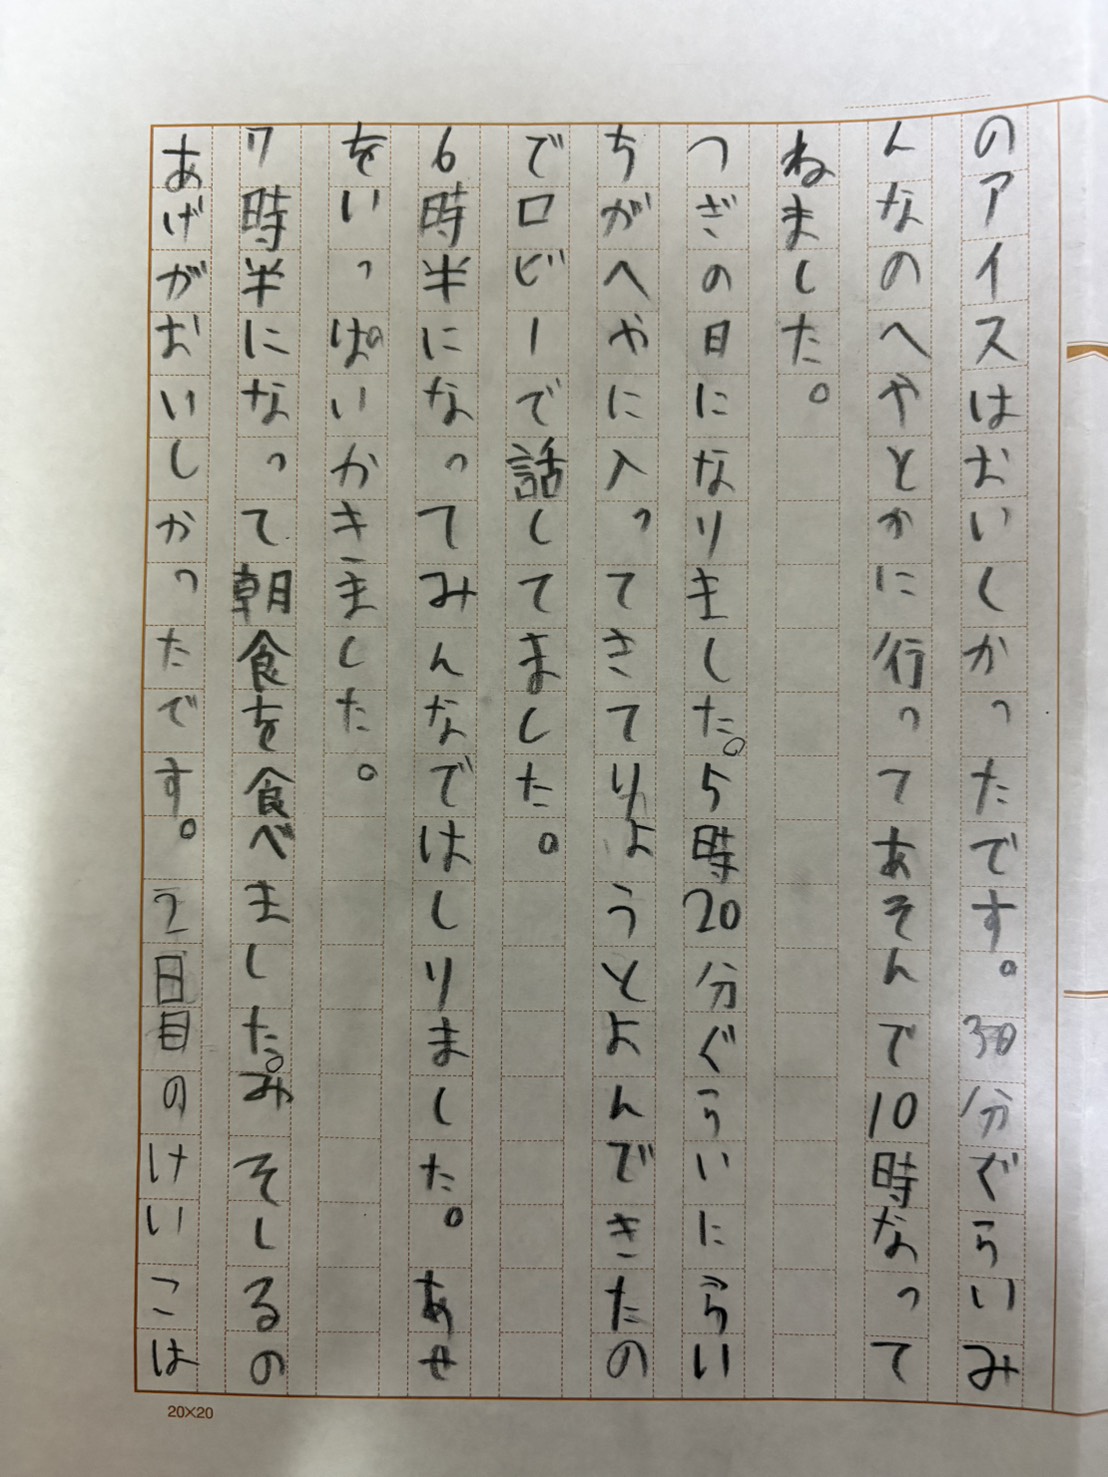 のアイスはおいしかったです。30分ぐらいみ
んなのへやとかに行ってあそんで10時なって
ねました。
つぎの日になりました。5時20分ぐらいにらい
ちがへやに入ってきてりようとよんできたの
でロビーで話してました。
6時半になってみんなではしりました。あせ
をいっぱいかきました。
7時半になって朝食を食べました。みそしるの
あげがおいしかったです。2日目のけいこは
20×20